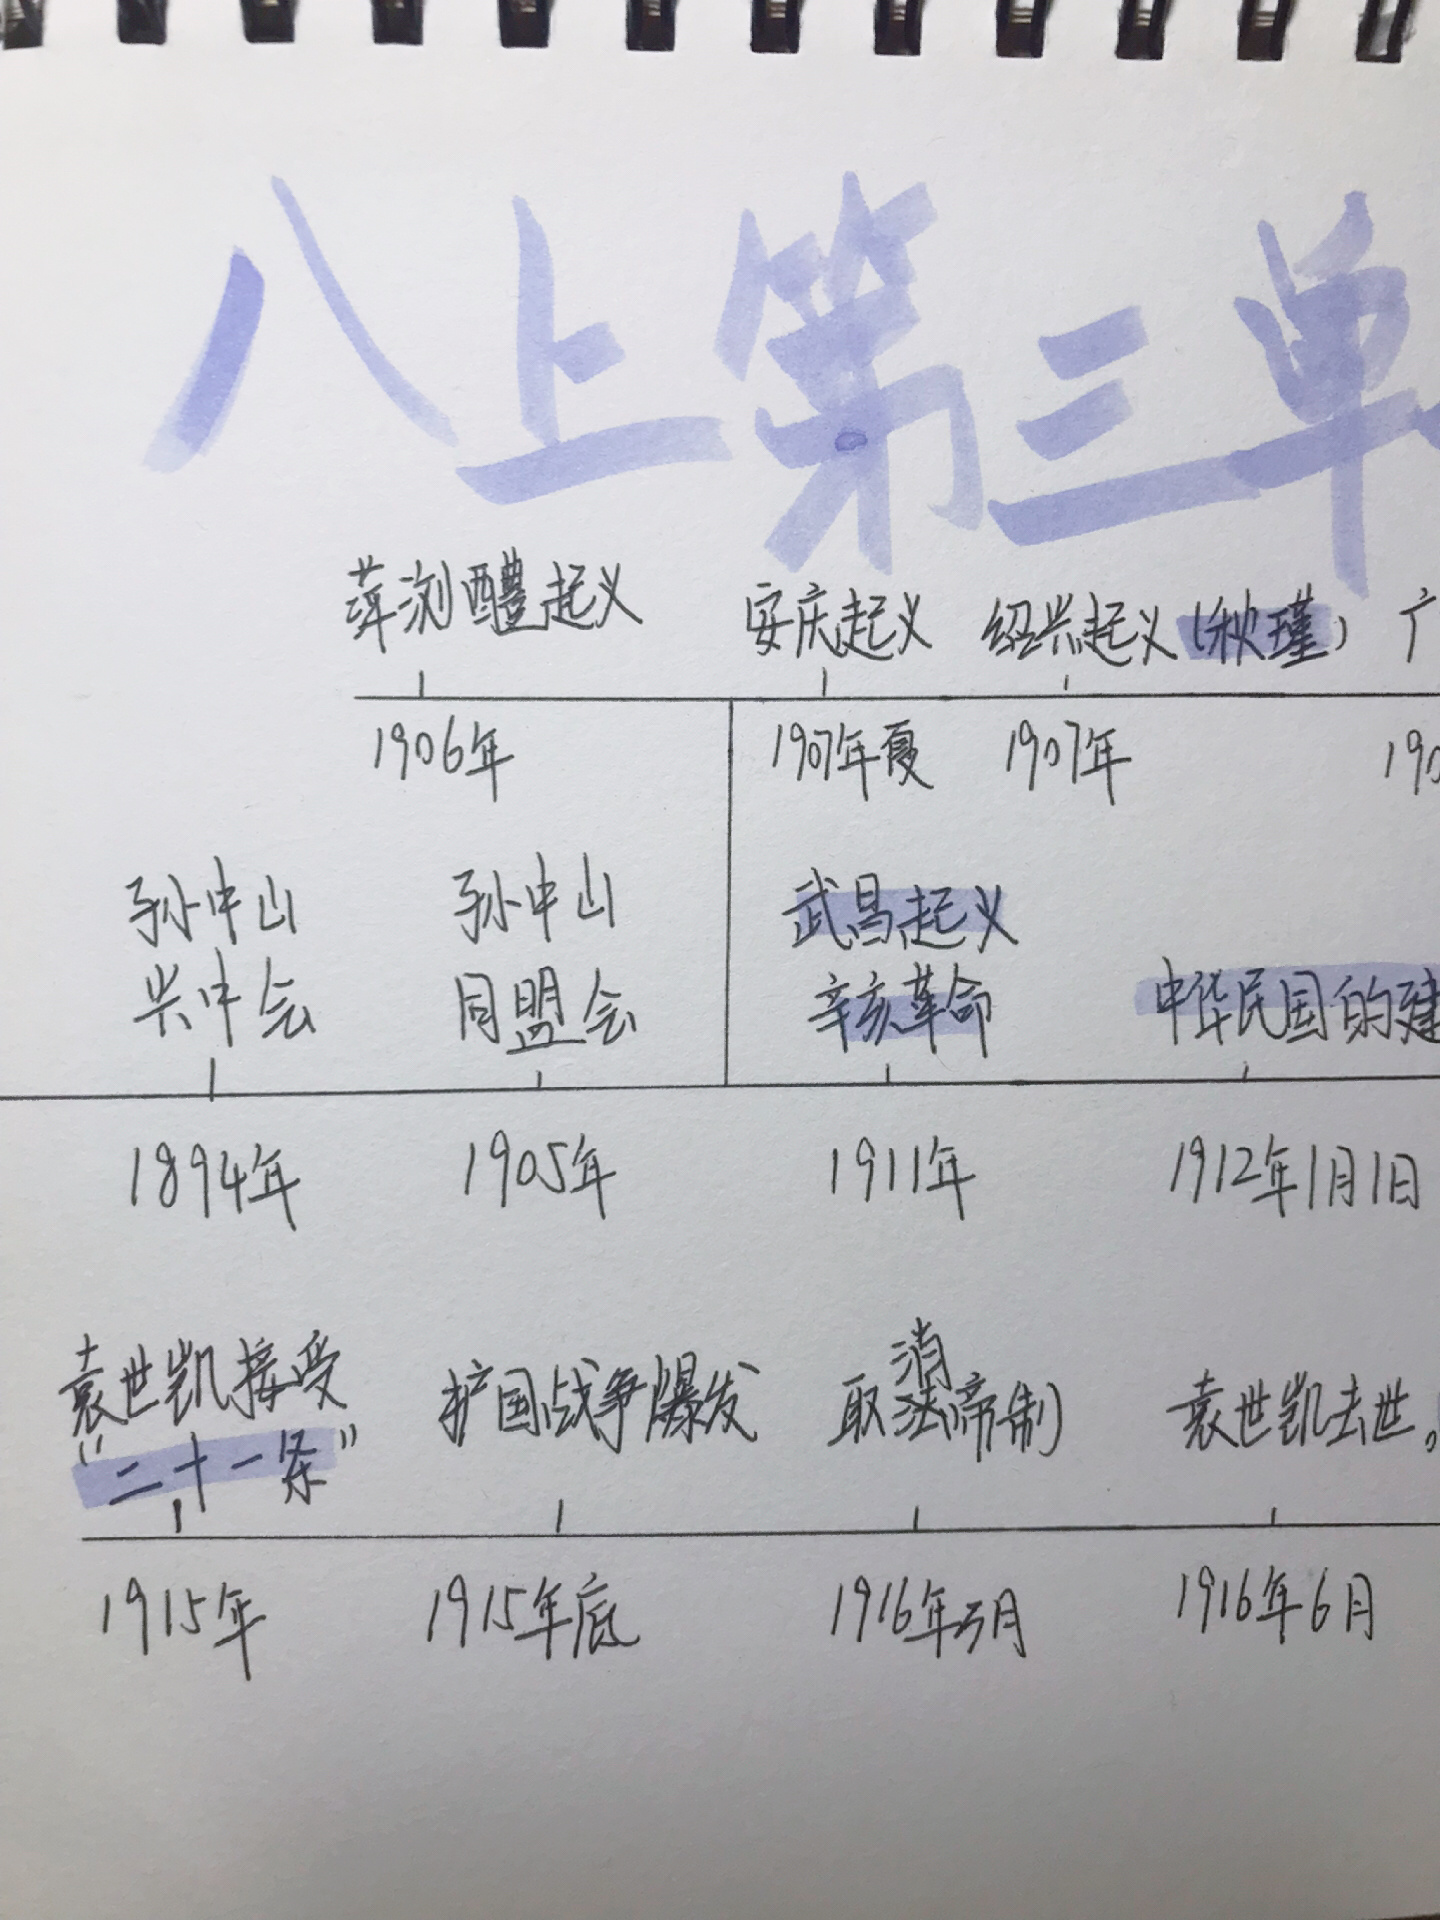 八上第三单
萍浏醴起义 安庆起义 绍兴起义(秋瑾) 广
1906年 1907年夏 1907年 190
孙中山 孙中山 武昌起义
兴中会 同盟会 辛亥革命 中华民国的建
1894年 1905年 1911年 1912年1月1日
袁世凯接受 扩国战争爆发 取消帝制 袁世凯去世。
“二十一条”
1915年 1915年底 1916年3月 1916年6月